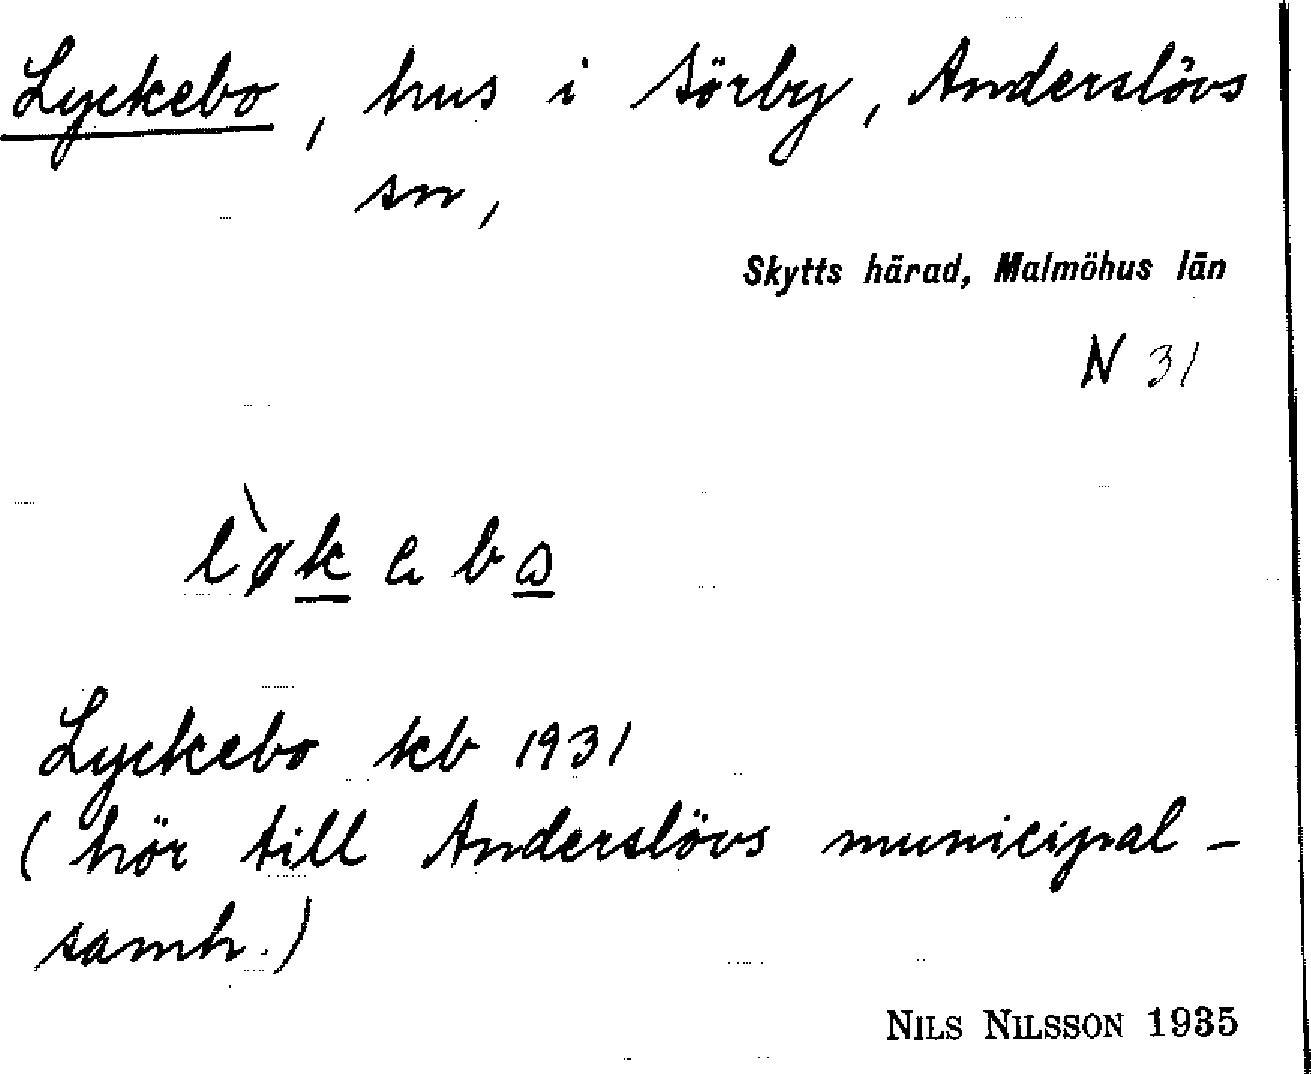 Lyckebo, hus i Sörby, Anderslövs
sn,
Skytts härad, Malmöhus län
N 31
Lyckebo kb 1931
(hör till Anderslövs municipal-
samh.)
NILS NILSSON 1935